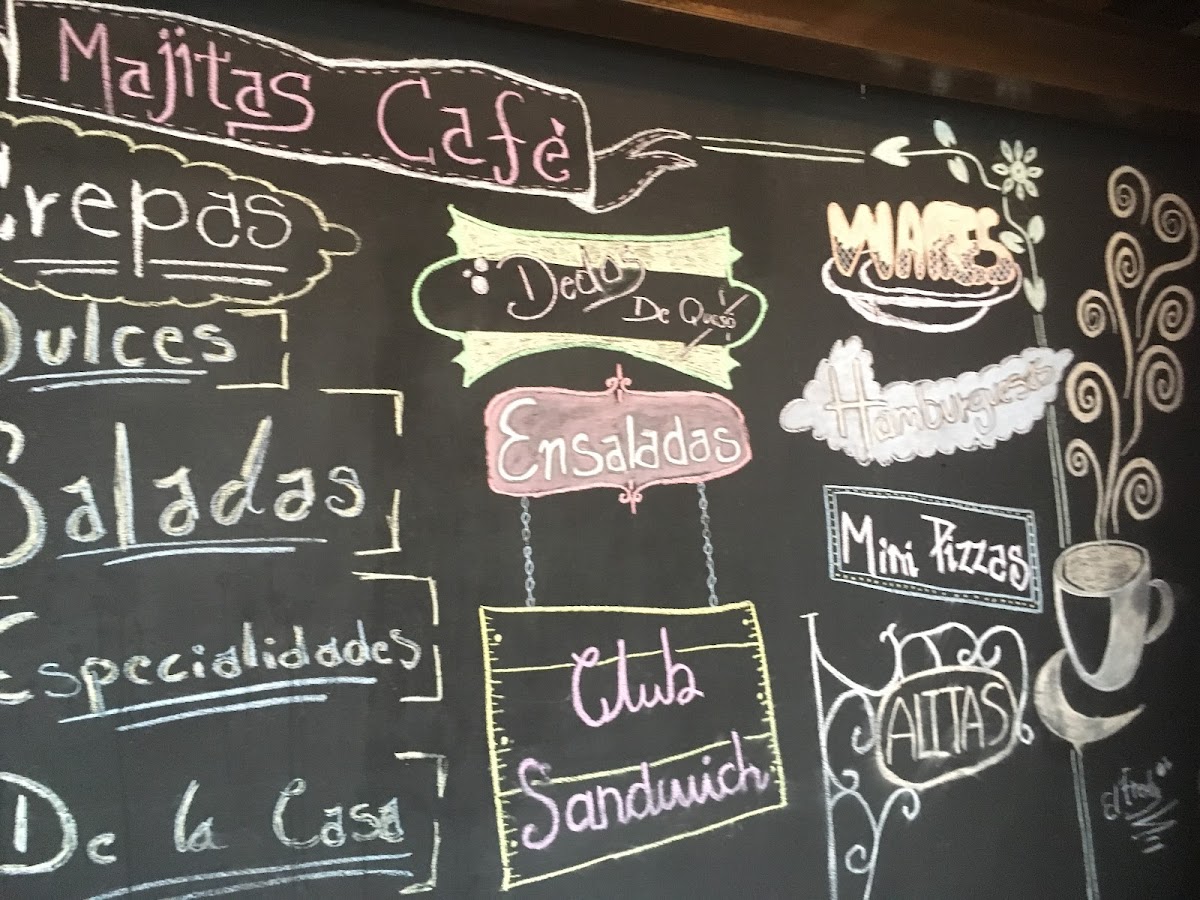 Majitas Cafè
Crepas
Dulces
Saladas
Especialidades
De la Casa
Dedos
De Queso
Ensaladas
Club
Sandwich
WAFFLES
Hamburguesas
Mini Pizzas
ALITAS